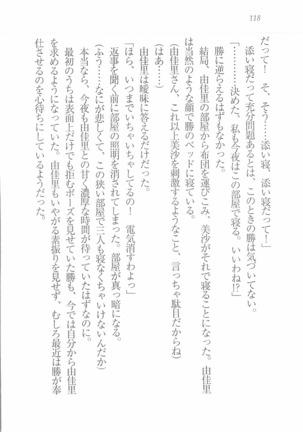 118
だって！　そ、そう！……添い寝、添い寝だって！」
添い寝だって充分問題あるとは、このときの勝は気づいてない。
「………決めた、私も今夜はこの部屋で寝る。いいわね!?」
勝に逆らえるはずもなかった。
結局、由佳里の部屋から布団を運びこみ、美沙がそれで寝ることになった。由佳里
は当然のような顔で勝のベッドに寝ている。
（由佳里さん、これ以上美沙を刺激するようなこと、言っちゃ駄目だからね）
（はあ……）
由佳里は曖昧に答えるだけだった。
「ほら、いつまでいちゃいちゃしてるの！　電気消すわよっ」
返事を聞く前に部屋の照明を消されてしまった。部屋が真っ暗になる。
（ふう……なにが悲しくて、この狭い部屋で三人も寝なくちゃいけないんだか）
本当なら、今夜も由佳里との甘くて濃厚な時間が待っていたはずなのに。
最初のうちは表面上だけでも拒むポーズを見せていた勝も、今では自分から由佳里
を求めるようになっていた。由佳里もいやがる素振りを見せず、むしろ最近は勝が奉
仕させるのを心待ちにしているようだった。